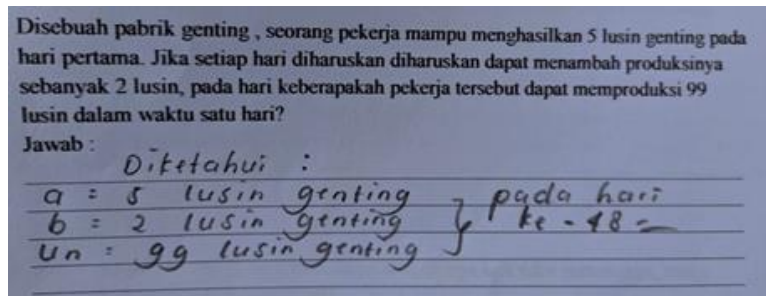 Disebuah pabrik genting , seorang pekerja mampu menghasilkan 5 lusin genting pada
hari pertama. Jika setiap hari diharuskan diharuskan dapat menambah produksinya
sebanyak 2 lusin, pada hari keberapakah pekerja tersebut dapat memproduksi 99
lusin dalam waktu satu hari?
Jawab :
Diketahui :
a = 5 lusin genting } pada hari
b = 2 lusin genting } ke - 48 =
Un = 99 lusin genting }